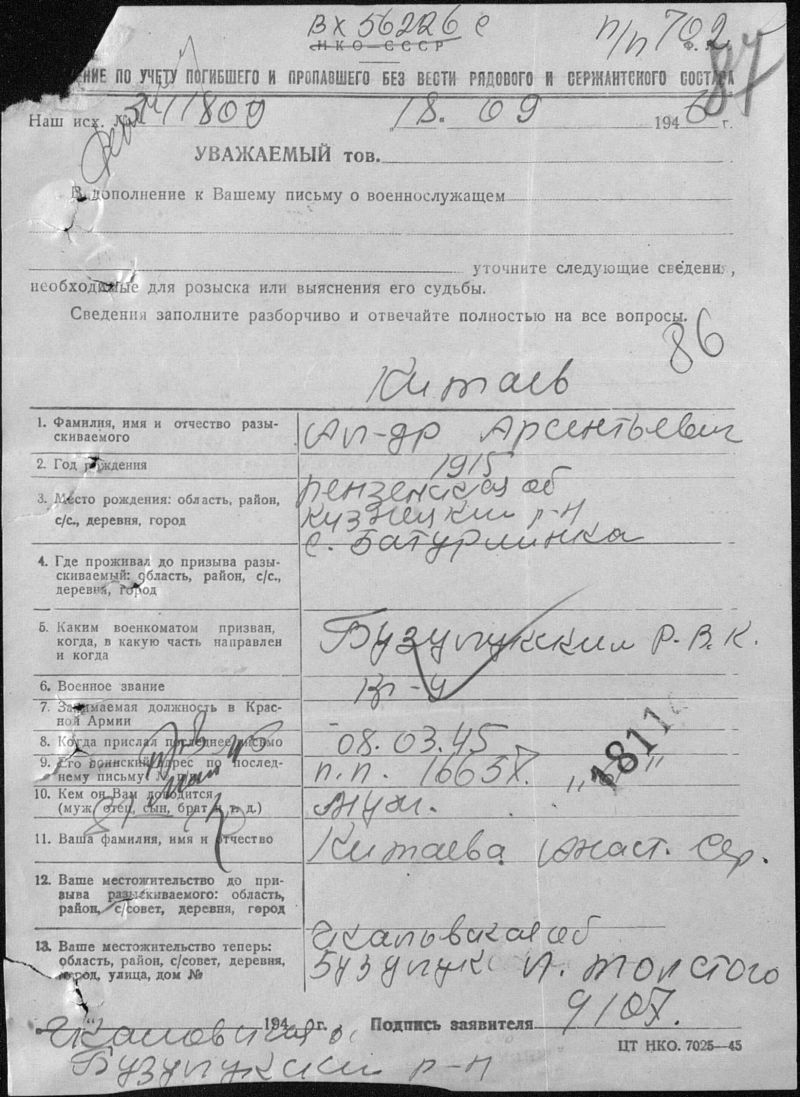 ВХ 56226 с
НКО-СССР
п/п 702
87
ЕНИЕ ПО УЧЕТУ ПОГИБШЕГО И ПРОПАВШЕГО БЕЗ ВЕСТИ РЯДОВОГО И СЕРЖАНТСКОГО СОСТАВА
Наш исх. № 11800 18. 09 1946 г.
УВАЖАЕМЫЙ тов.
В дополнение к Вашему письму о военнослужащем
уточните следующие сведения,
необходимые для розыска или выяснения его судьбы.
Сведения заполните разборчиво и отвечайте полностью на все вопросы.
86
Китаев
1. Фамилия, имя и отчество разы-
скиваемого
Ал-др Арсентьевич
2. Год рождения
1915
3. Место рождения: область, район,
с/с., деревня, город
пензенская об
кузнецкий р-н
с. Батурлинка
4. Где проживал до призыва разы-
скиваемый: область, район, с/с.,
деревня, город
5. Каким военкоматом призван,
когда, в какую часть направлен
и когда
Бузулукским Р.В.К.
6. Военное звание
Кр-ц
7. Занимаемая должность в Крас-
ной Армии
8. Когда прислал последнее письмо
08.03.45
9. Его воинский адрес по послед-
нему письму № п/п
п.п. 16657.
1811
10. Кем он Вам доводится
(муж, отец, сын, брат и т. д.)
муж.
11. Ваша фамилия, имя и отчество
Китаева Анаст. Сер.
12. Ваше местожительство до при-
зыва разыскиваемого: область,
район, с/совет, деревня, город
13. Ваше местожительство теперь:
область, район, с/совет, деревня,
город, улица, дом №
Чкаловская об
Бузулук Л. Толстого
194 г. Подпись заявителя
Чкаловская о
Бузулукский р-н
ЦТ НКО. 7025—45